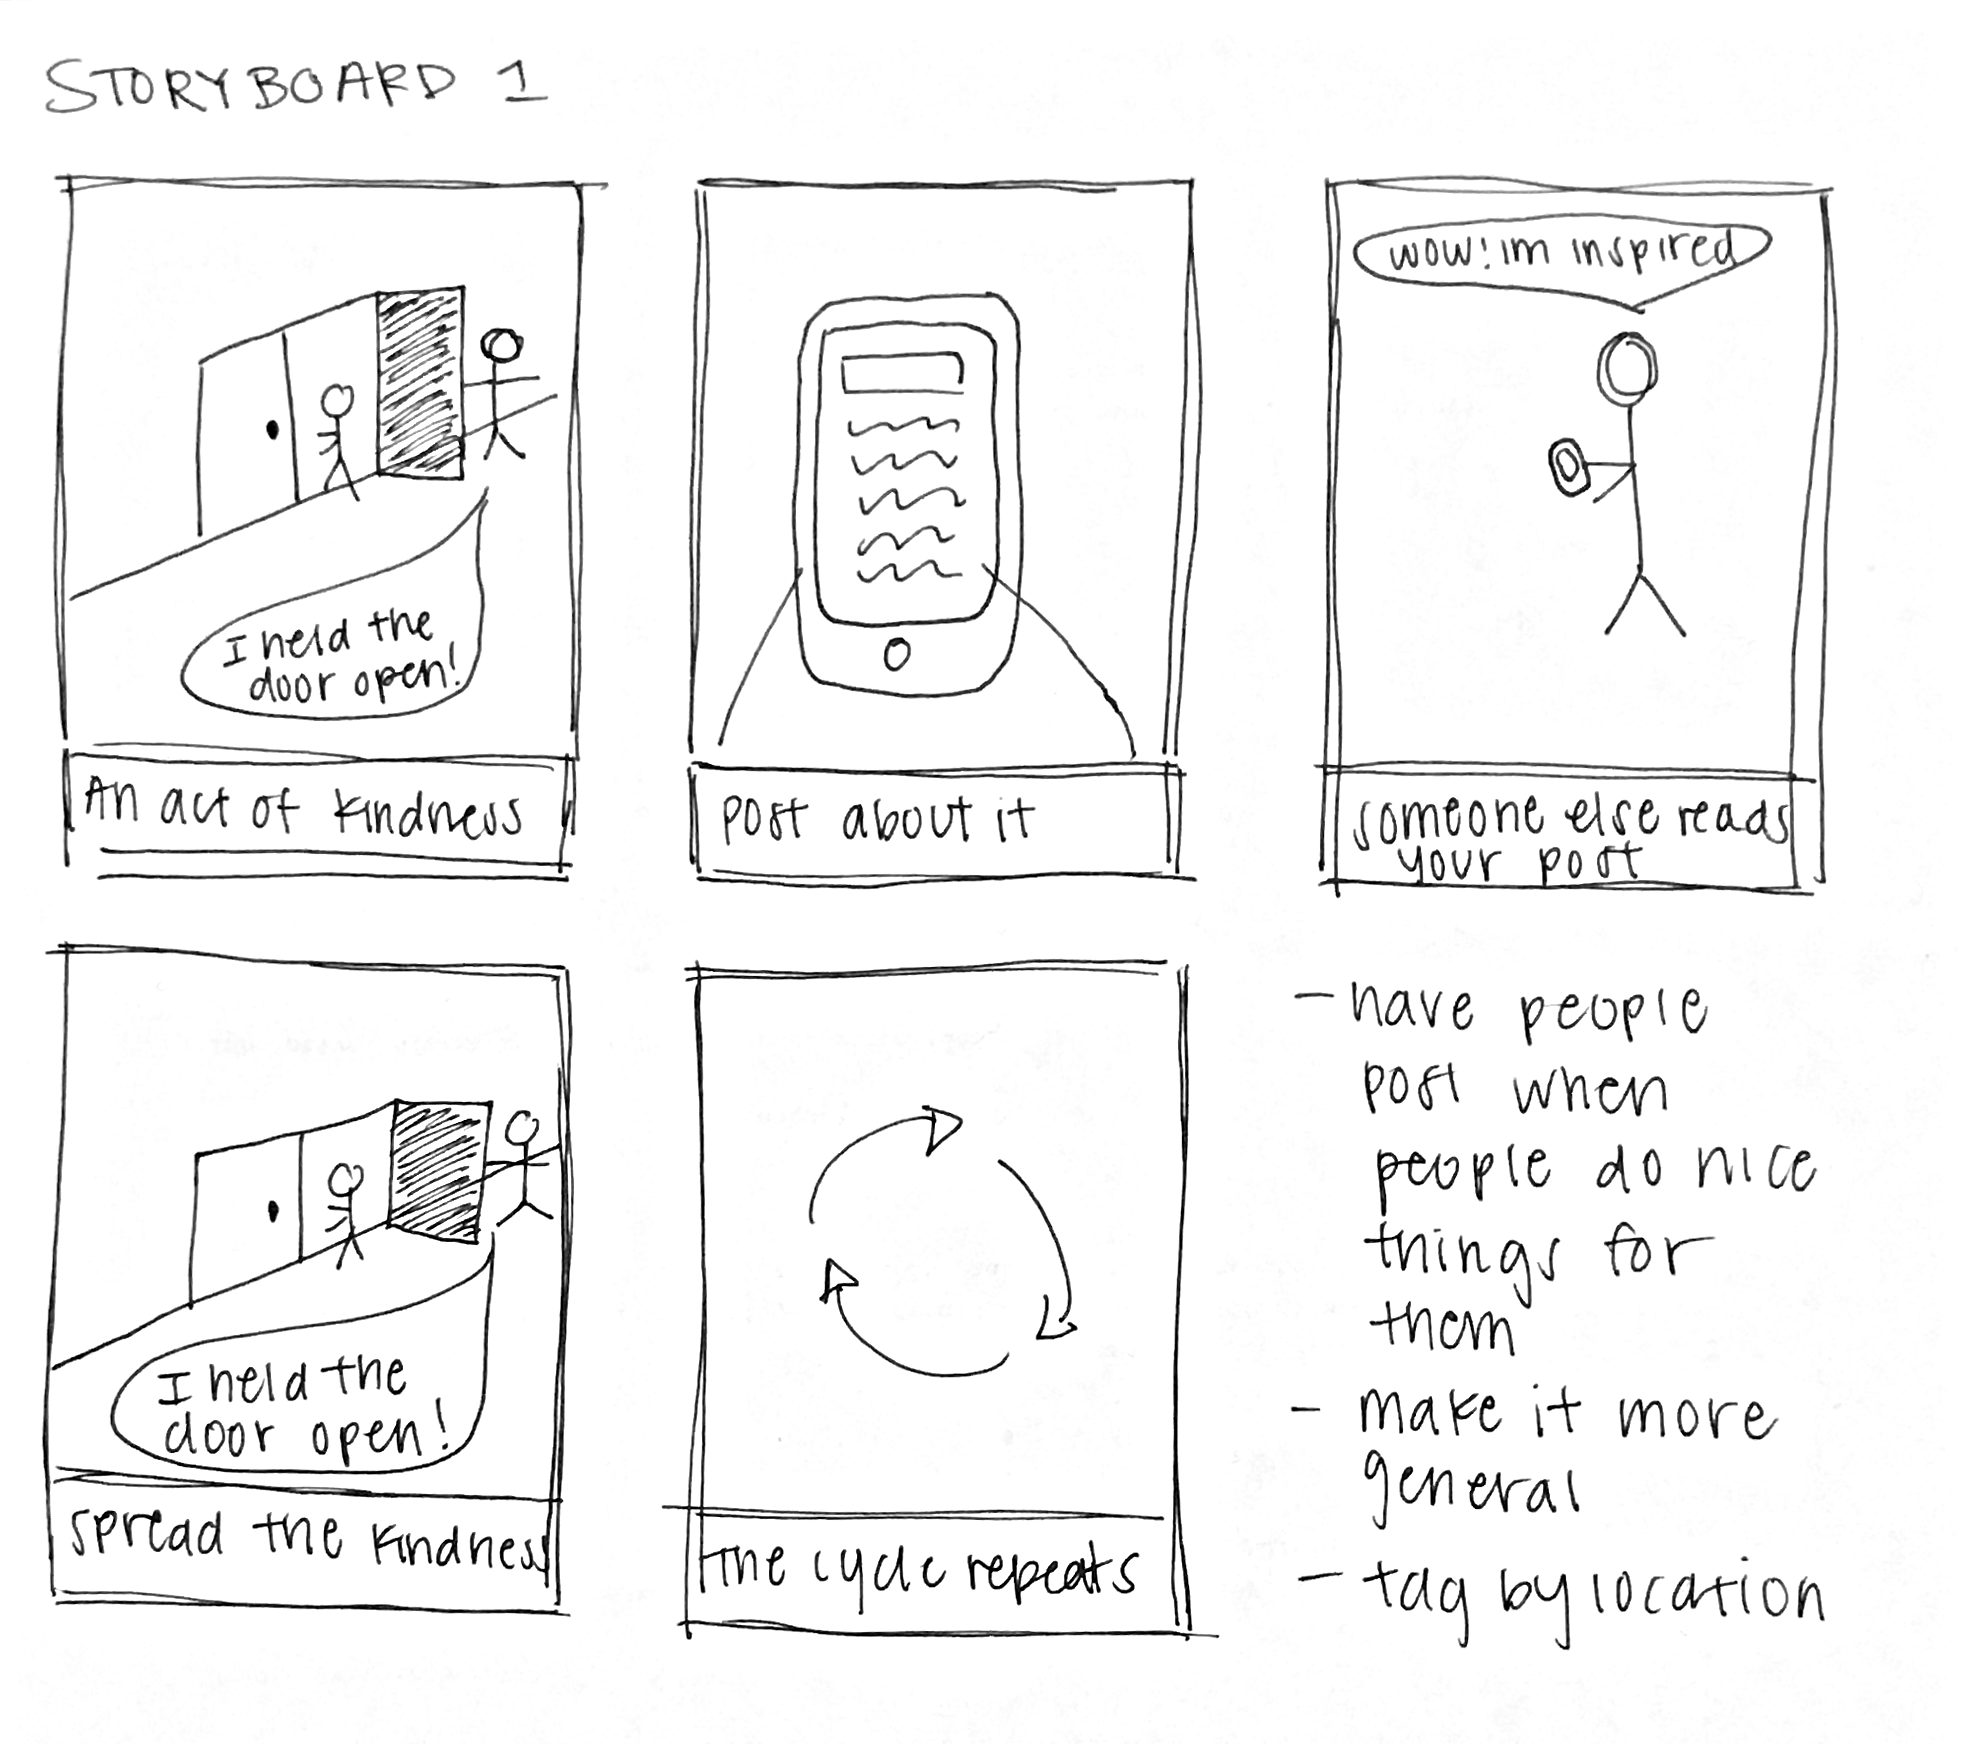 STORYBOARD 1
I held the
door open!
An act of kindness
post about it
wow! im inspired
someone else reads
your post
I held the
door open!
spread the kindness
the cycle repeats
- have people
post when
people do nice
things for
them
- make it more
general
- tag by location